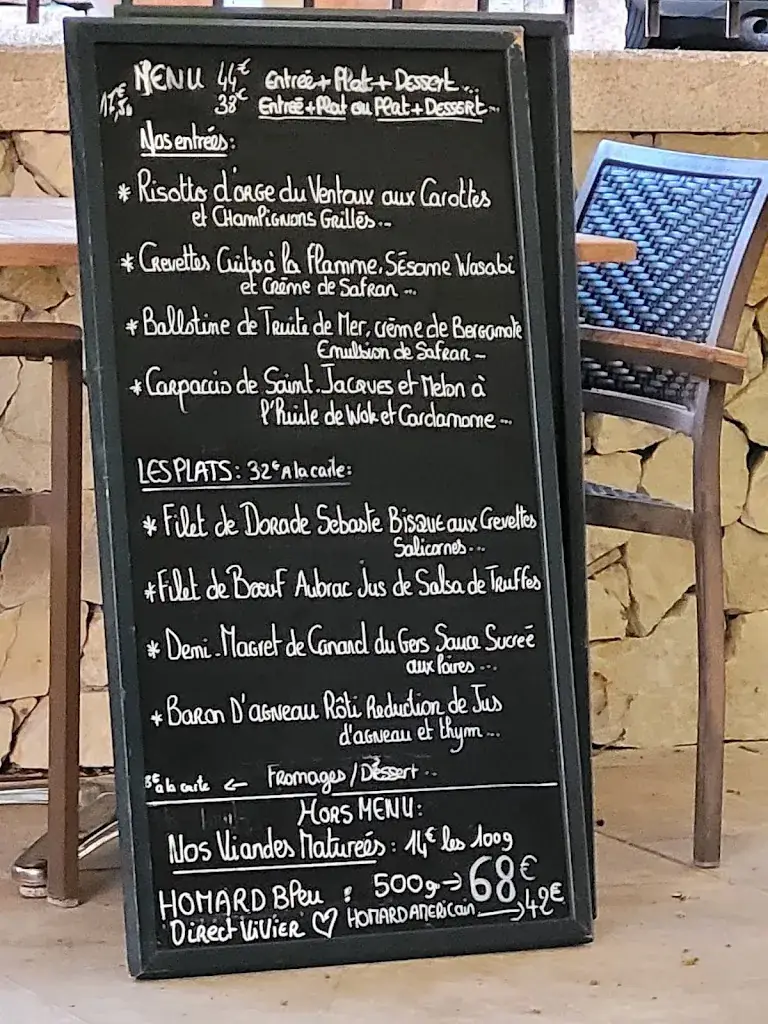 MENU 44€ Entrée + Plat + Dessert...
17€,50 38€ Entrée + Plat ou Plat + Dessert...
Nos entrées:
* Risotto d'orge du Ventoux aux Carottes
et Champignons Grillés...
* Crevettes Cuites à la Flamme, Sésame Wasabi
et Crème de Safran...
* Ballotine de Truite de Mer, crème de Bergamote
Emulsion de Safran -
* Carpaccio de Saint-Jacques et Melon à
l'Huile de Wok et Cardamome...
LES PLATS: 32€ A la carte:
* Filet de Dorade Sebaste Bisque aux Crevettes
Salicornes...
* Filet de Bœuf Aubrac Jus de Salsa de Truffes
* Demi-Magret de Canard du Gers Sauce Sucreé
aux Poires...
* Baron D'agneau Rôti Reduction de Jus
d'agneau et thym...
à la carte ← Fromages / Déssert..
Hors MENU:
Nos Viandes Matureés: 14€ les 100g
HOMARD Bleu: 500g → 68€
Direct Vivier ♡ HOMARD AMERICAIN → 42€